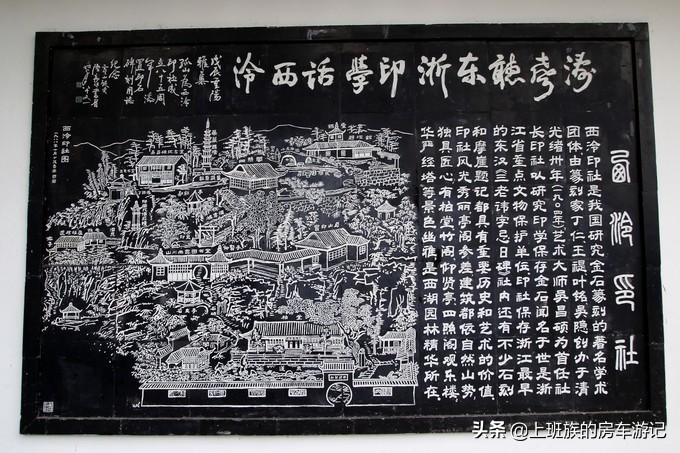 濤聲聽东浙印學话西泠
西泠印社
西泠印社是我国研究金石篆刻的著名学术
团体由篆刻家丁仁王禔叶铭吴隐创办于清
光绪卅年(一九〇四年)艺术大师吴昌硕为首任社
长印社以研究印学保存金石闻名于世是浙
江省重点文物保护单位印社保存浙江最早
的东汉《三老讳字忌日碑》社内还有不少石刻
和摩崖题记都具有重要历史和艺术的价值
印社风光秀丽亭阁参差建筑都依自然山势
独具匠心有柏堂竹阁仰贤亭四照阁观乐楼
华严经塔等景色幽雅是西湖园林精华所在
戊辰重阳
雅集
孤山
印社成
立八十五周
纪念
西泠印社图
头条 @上班族的房车游记